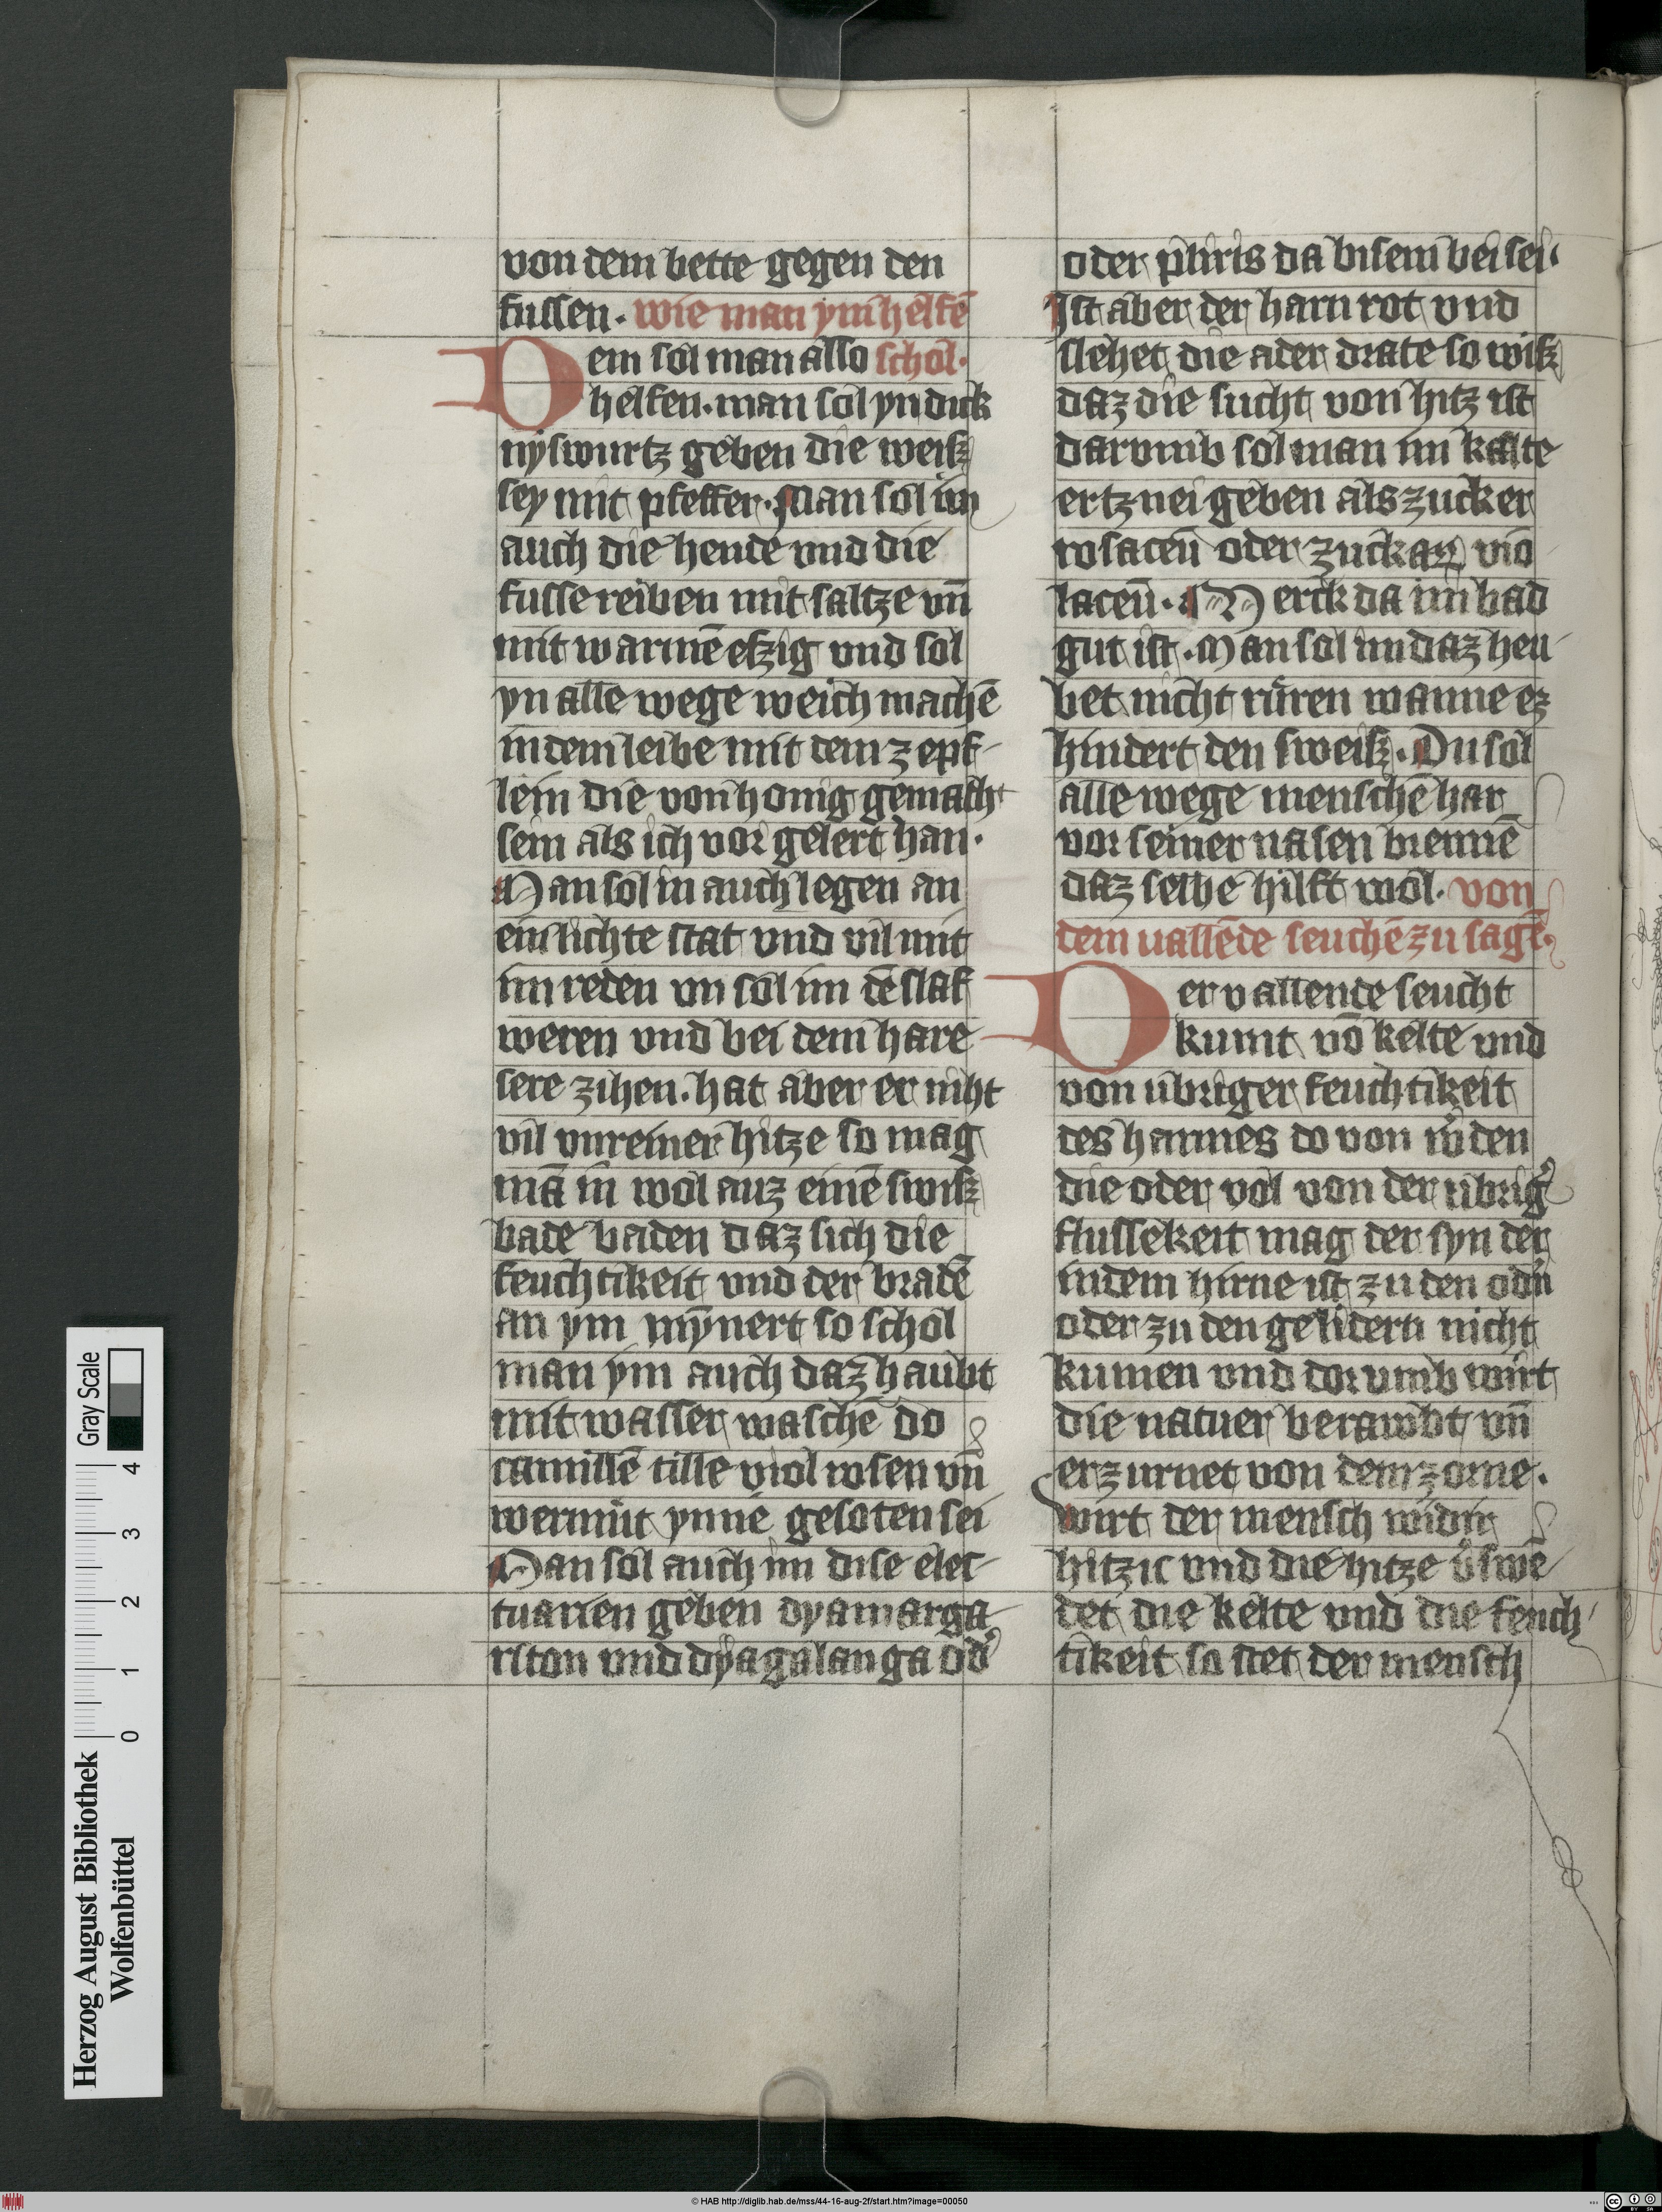 von dem bette gegen den
fussen. wie man ym helfē
Dem sol man also schol.
helfen. man sol yn dick
nyswurtz geben die weiß
sey mit pfeffer. Man sol im
auch die hende vnd die
fusse reiben mit saltze vn̄
mit warmē eßig vnd sol
yn alle wege weich machē
in dem leibe mit dem zepf
lein die von honig gemacht
sein als ich vor gelert han.
Man sol in auch legen an
ein lichte stat vnd vil mit
im reden vn sol im dē slaf
weren vnd bei dem hare
sere zihen. hat aber er niht
vil vnreiner hitze so mag
mā in wol auz einē sweiß
bade baden daz sich die
feuchtikeit vnd der bradē
an ym mỹnert so schol
man ym auch daz haubt
mit wasser waschē do
camillē tille viol rosen vn̄
wermut ynne gesoten sei
Man sol auch im dise elec
tuarien geben dyamarga
riton vnd dyagalanga od'
oder pliris da bisem bei sei.
Ist aber der harn rot vnd
slehet die ader drate so wiß
daz die sucht von hitz ist
darvmb sol man im kalte
ertznei geben als zucker
rosaceū oder zuckar vio
laceū. Merck da im bad
gut ist. Man sol im daz heu
bet nicht rüren wanne ez
hindert den sweiß. Du sol
alle wege menschē har
vor seiner nasen brennē
daz selbe hilft wol. von
dem uallēde seuchē zu sagē.
Der vallende seucht
kumt vō kelte vnd
von ubriger feuchtikeit
des harmes do von w'den
die oder vol von der ubrig'
flussekeit mag der syn der
in dem hirne ist zu den od'n
oder zu den gelidern nicht
kumen vnd dor vmb wirt
die natuer beraubt vn̄
erzurnet von dem zorne.
wirt der mensch wid'
hitzic vnd die hitze v'swē
det die kelte vnd die feuch
tikeit so stet der mensch
Herzog August Bibliothek
Wolfenbüttel
0 1 2 3 4
Gray Scale
© HAB http://diglib.hab.de/mss/44-16-aug-2f/start.htm?image=00050